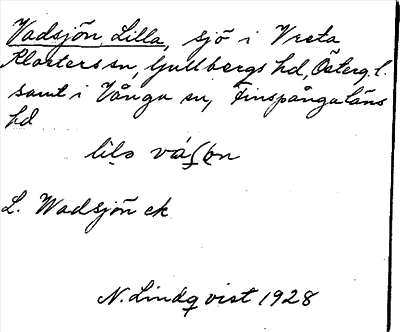 Vadsjön, Lilla, sjö i Vreta
Klosters sn, Gullbergs hd, Österg. l.
samt i Vånga sn, Finspånga läns
hd
lilo
L. Wadsjön ek
N. Lindqvist 1928